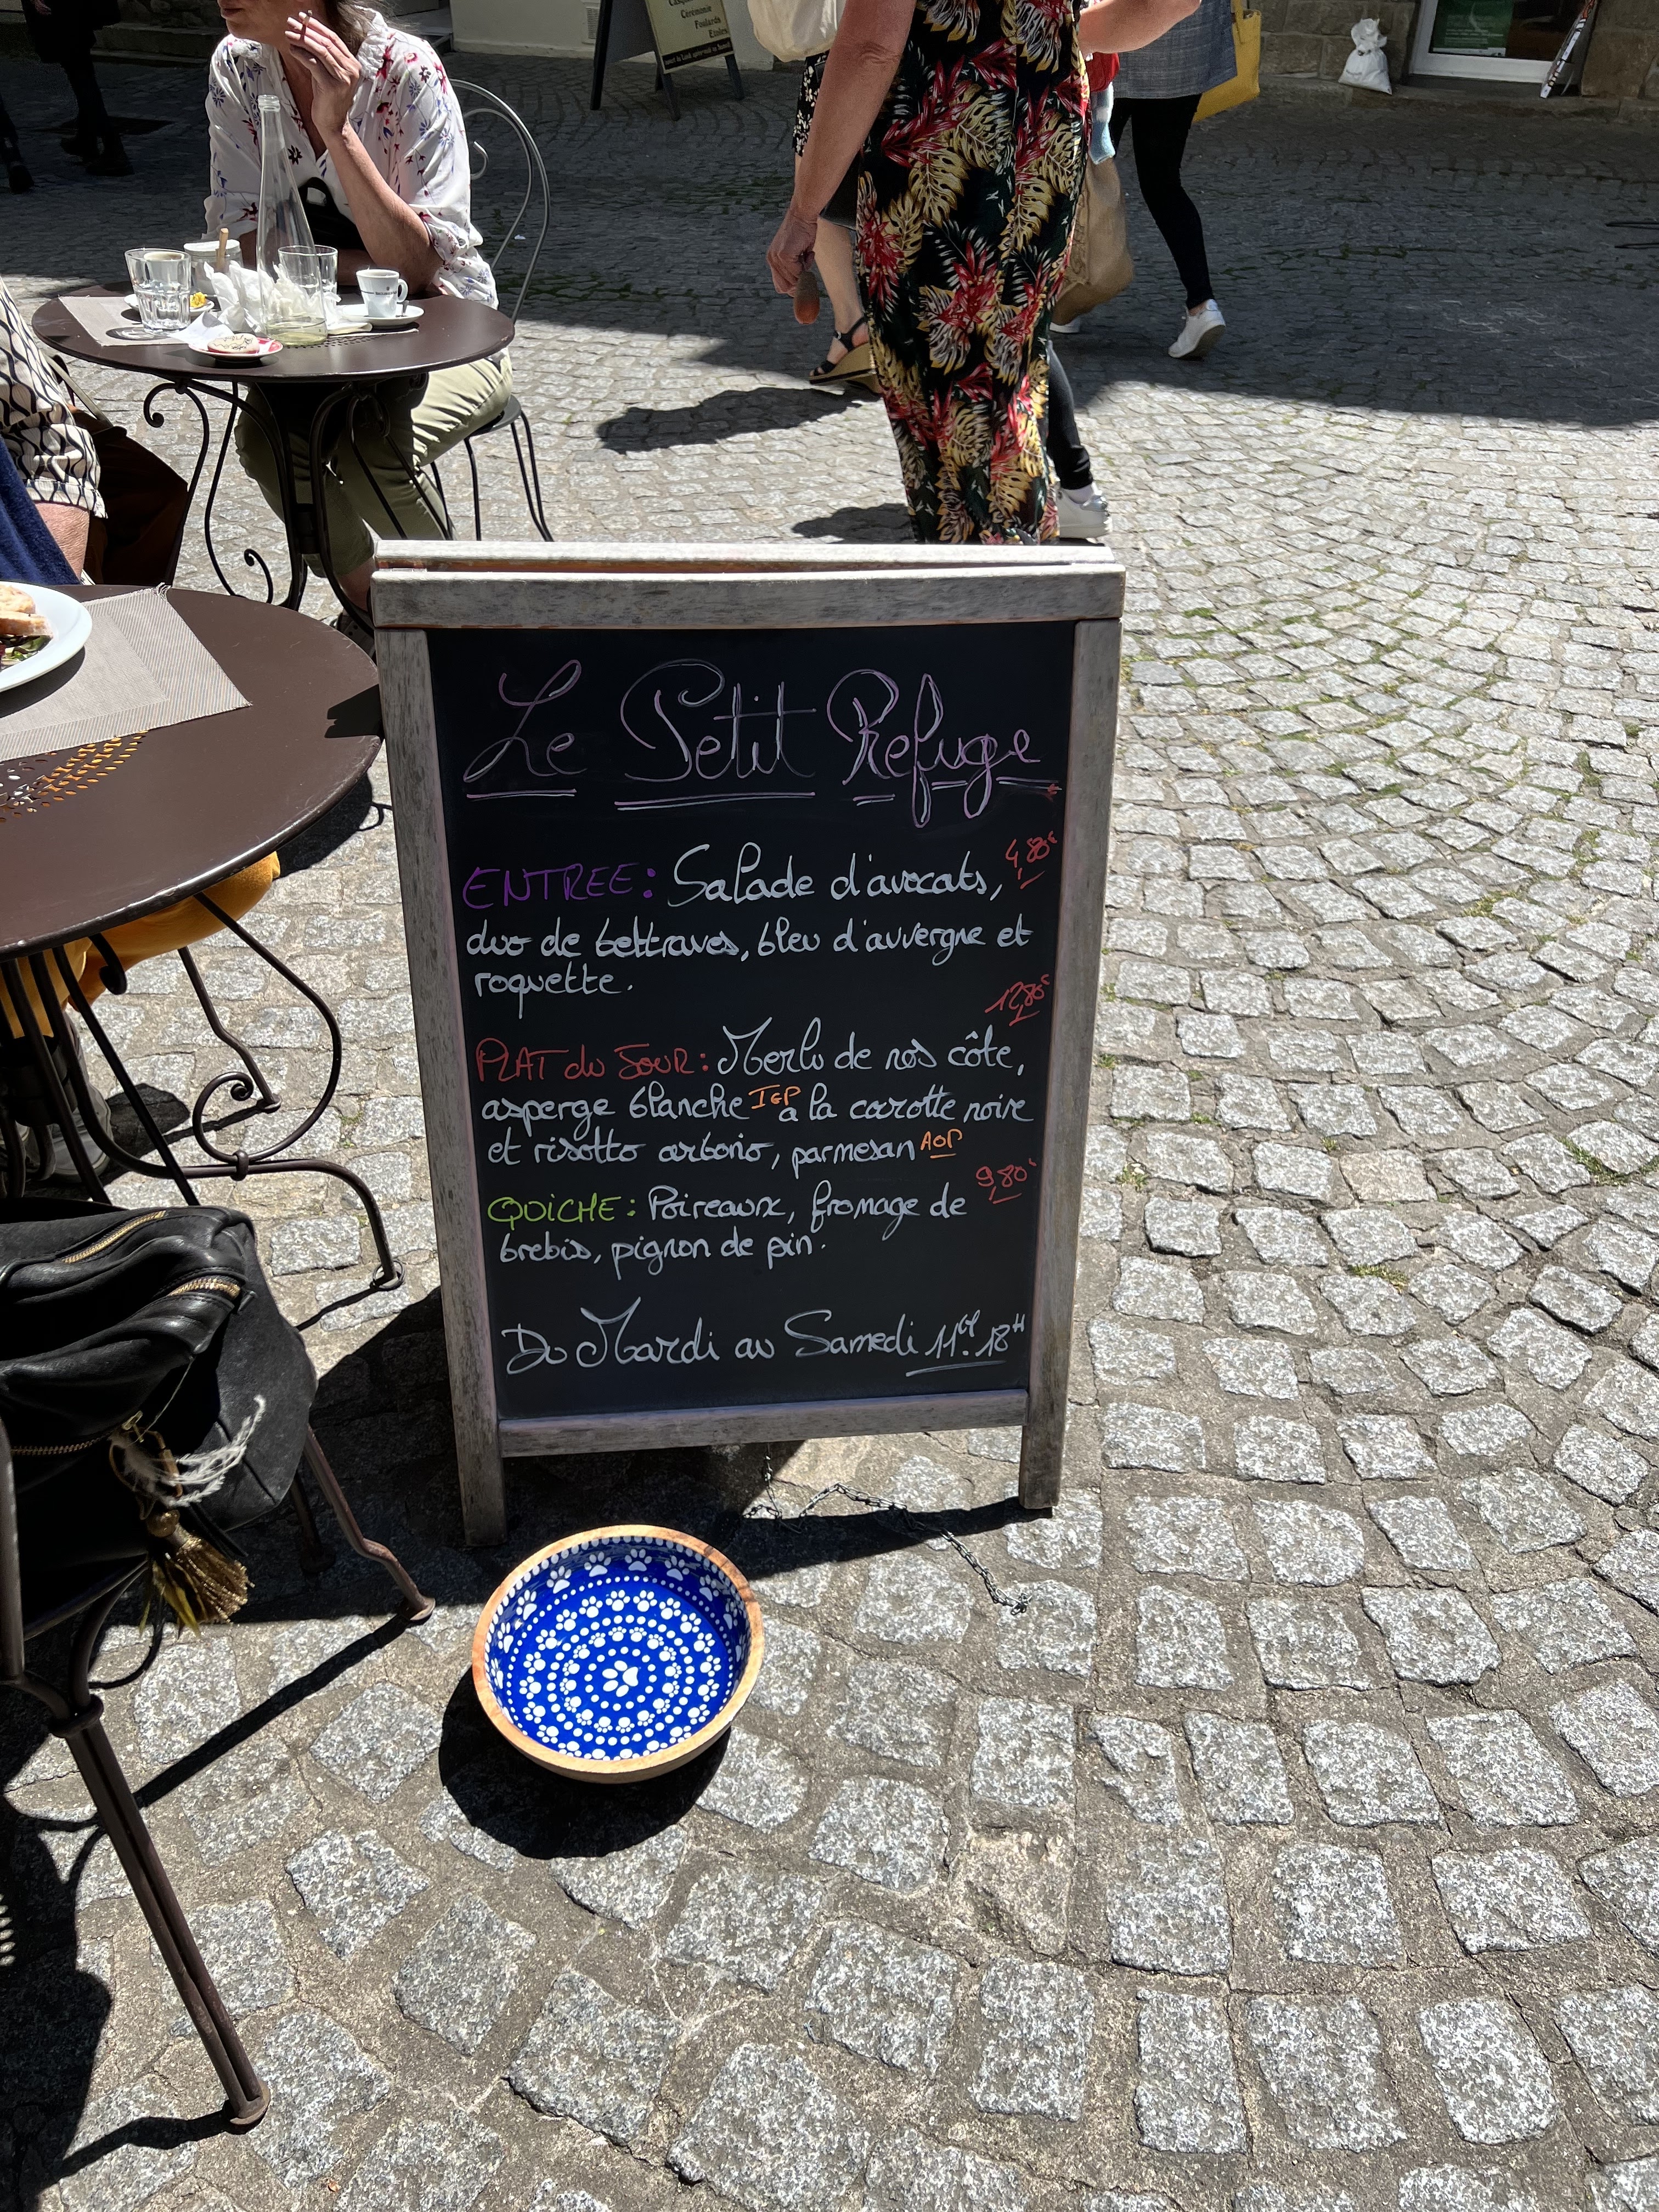 Cérémonie
Foulards
Etoles
Le Petit Refuge
ENTREE: Salade d'avocats, 4,80€
duo de bettraves, bleu d'auvergne et
roquette.
12,80€
PLAT du JOUR: Merlu de nos côte,
asperge blanche IGP a la carotte noire
et risotto arborio, parmesan AOP
9,80€
QUICHE: Poireaux, fromage de
brebis, pignon de pin.
Du Mardi au Samedi 11H. 18H